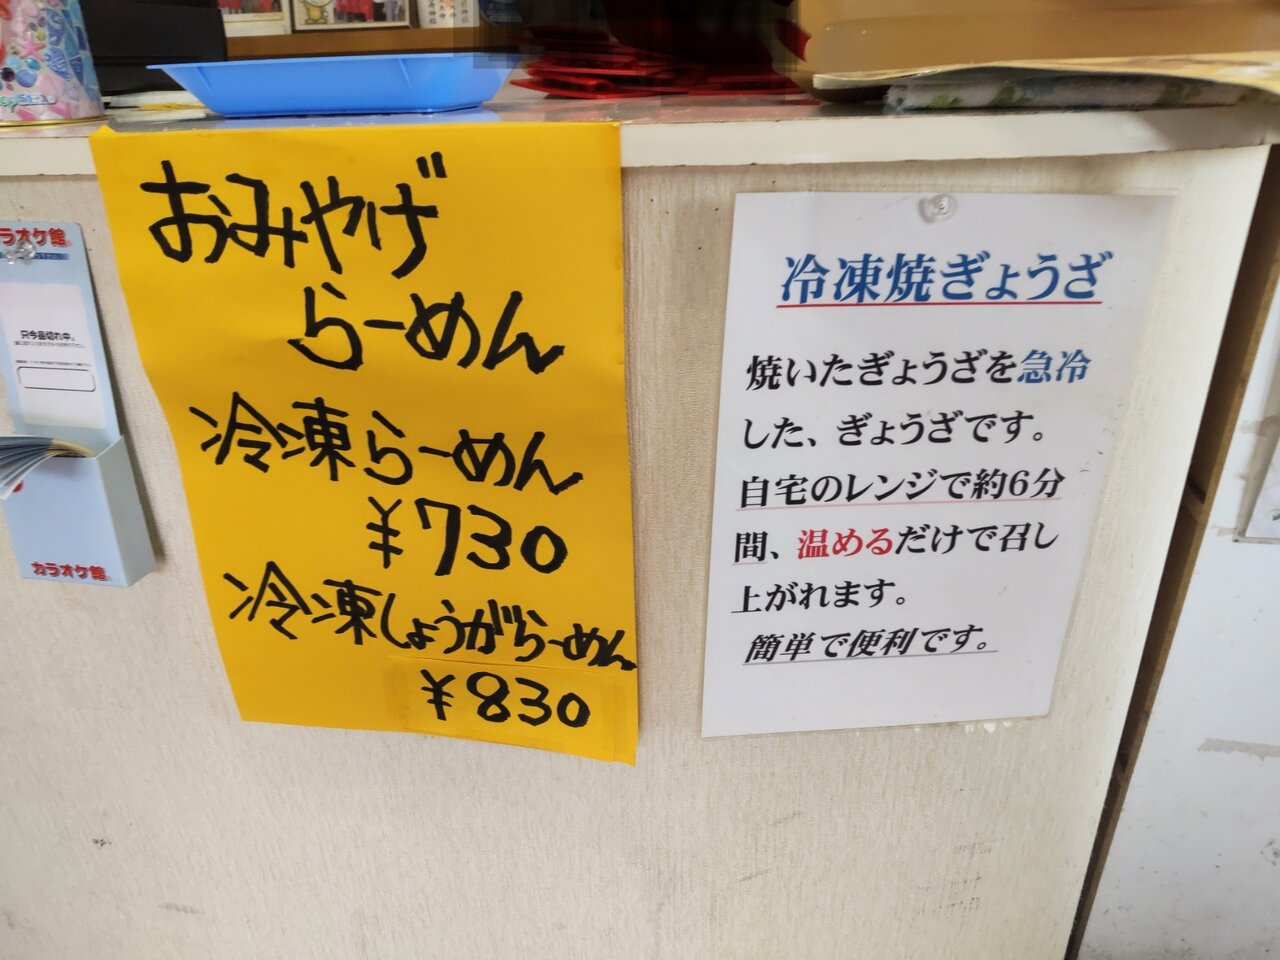 おみやげ
らーめん
冷凍らーめん
¥730
冷凍しょうがらーめん
¥830
冷凍焼ぎょうざ
焼いたぎょうざを急冷
した、ぎょうざです。
自宅のレンジで約6分
間、温めるだけで召し
上がれます。
簡単で便利です。
ラオケ館
只今品切れ中。
カラオケ館